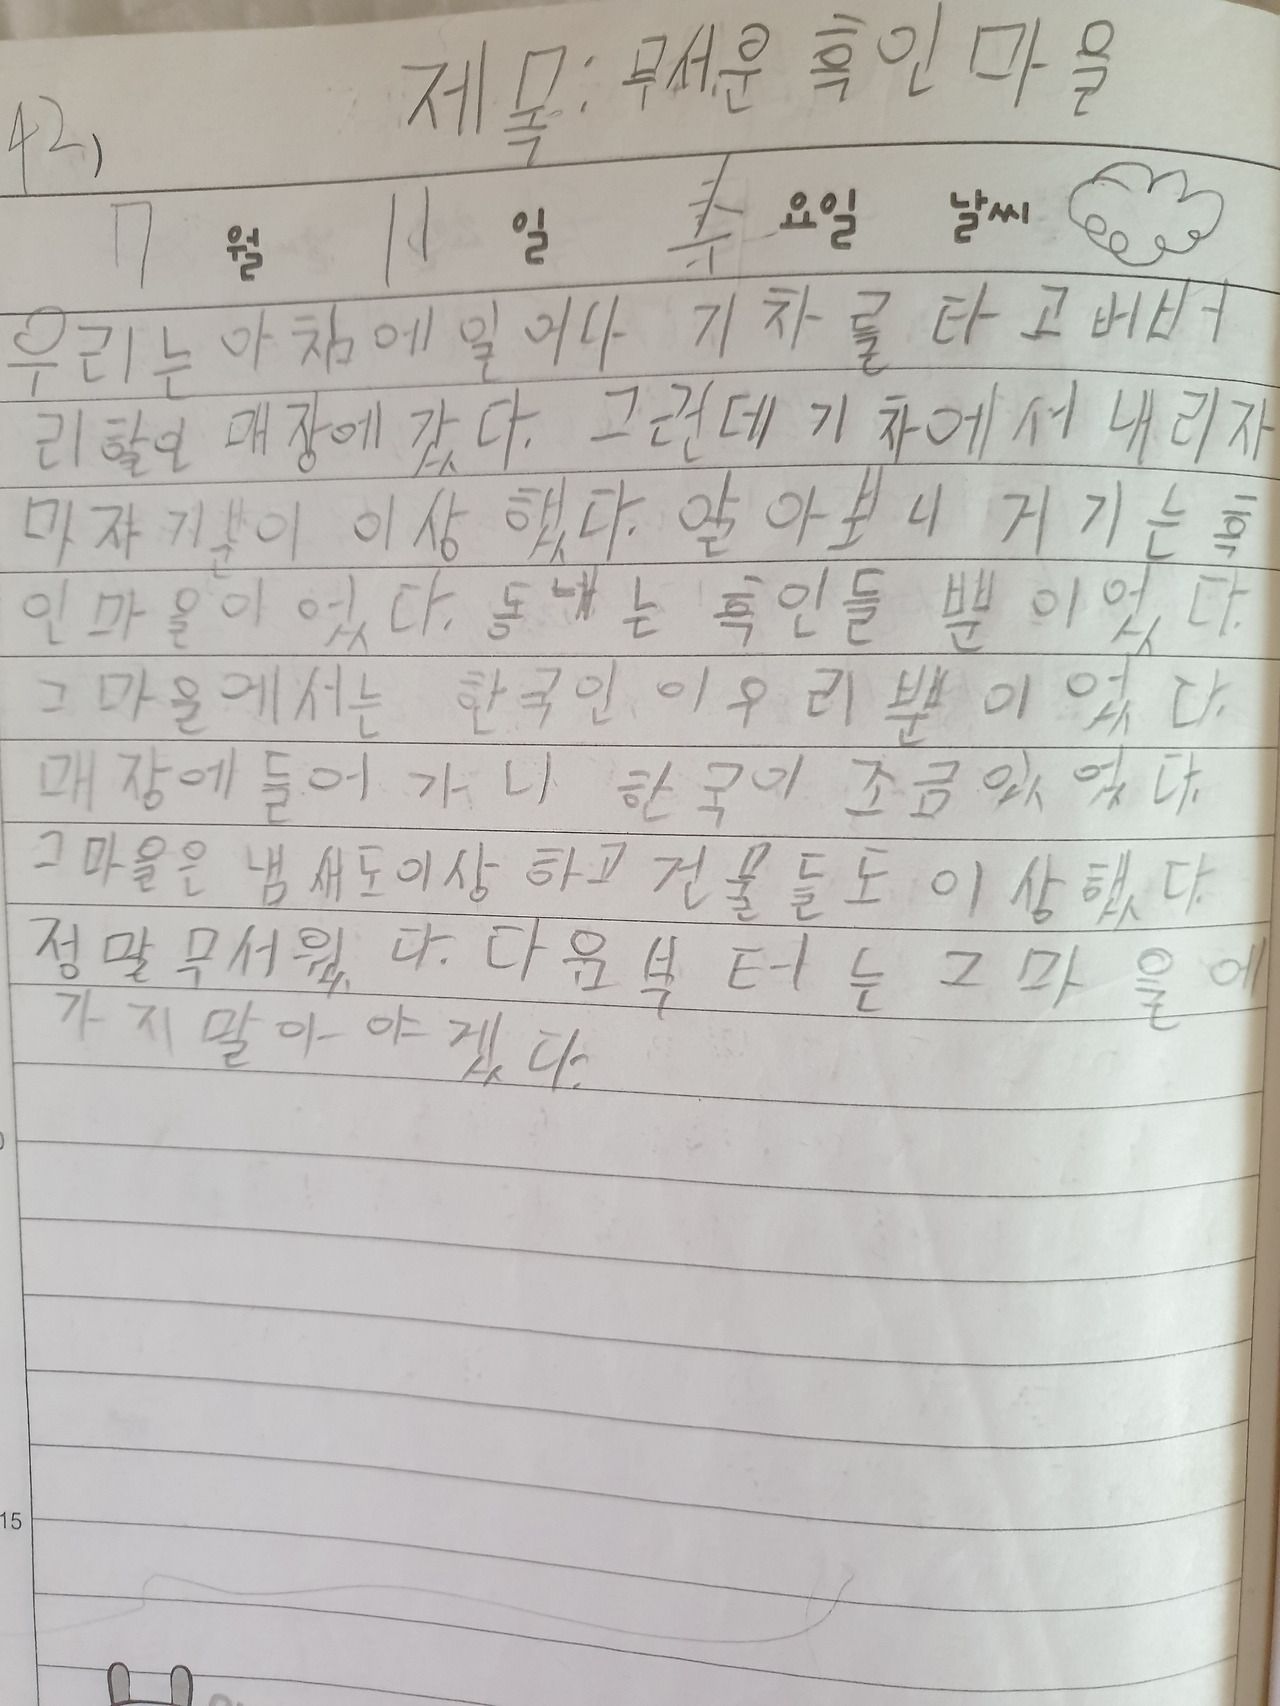 제목: 무서운 흑인 마을
42)
7월 11일 목요일 날씨
우리는 아침에 일어나 기차를 타고 버버
리할인 매장에 갔다. 그런데 기차에서 내리자
마자 기분이 이상했다. 알아보니 거기는 흑
인마을이었다. 동내는 흑인들 뿐이었다.
그마을에서는 한국인이 우리뿐이었다.
매장에 들어가니 한국이 조금 있었다.
그마을은 냄새도 이상하고 건물들도 이상했다.
정말 무서웠다. 다음부터는 그 마을에
가지 말아야겠다.
15